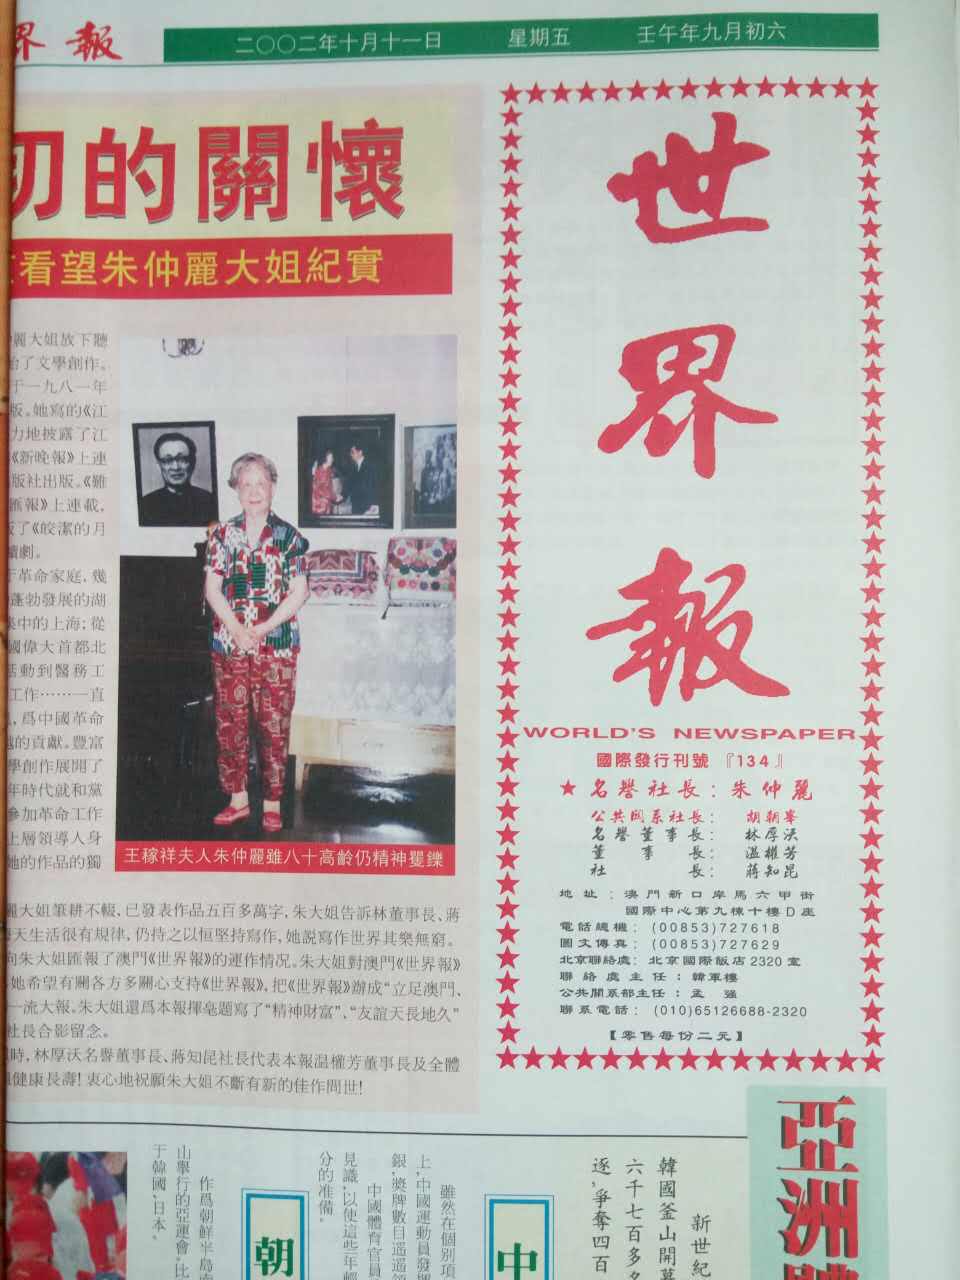 界報
二〇〇二年十月十一日 星期五 壬午年九月初六
切的關懷
看望朱仲麗大姐紀實
麗大姐放下聽
始了文學創作。
于一九八一年
版。她寫的《江
力地披露了江
《新晚報》上連
版社出版。《雖
匯報》上連載,
版了《皎潔的月
續劇。
于革命家庭,幾
蓬勃發展的湖
集中的上海;從
國偉大首都北
活動到醫務工
工作……一直
,爲中國革命
越的貢獻。豐富
學創作展開了
年時代就和黨
參加革命工作
上層領導人身
她的作品的獨
王稼祥夫人朱仲麗雖八十高齡仍精神矍鑠
麗大姐筆耕不輟、已發表作品五百多萬字,朱大姐告訴林董事長、蔣
天生活很有規律,仍持之以恒堅持寫作,她説寫作世界其樂無窮。
向朱大姐匯報了澳門《世界報》的運作情况。朱大姐對澳門《世界報》
她希望有關各方多關心支持《世界報》。把《世界報》辦成“立足澳門、
一流大報。朱大姐還爲本報揮毫題寫了“精神財富”、“友誼天長地久”
社長合影留念。
時,林厚沃名譽董事長、蔣知昆社長代表本報温權芳董事長及全體
健康長壽!衷心地祝願朱大姐不斷有新的佳作問世!
世界報
WORLD'S NEWSPAPER
國際發行刊號『134』
★名譽社長:朱仲麗
公共関系社長: 胡朝峯
名譽董事長: 林厚沃
董事長: 溫權芳
社長: 蔣知昆
地址:澳門新口岸馬六甲街
國際中心第九棟十樓D座
電話總機:(00853)727618
圖文傳真:(00853)727629
北京聯絡處:北京國際飯店2320室
聯絡處主任:韓軍樓
公共關系部主任:孟強
聯系電話:(010)65126688-2320
【零售每份二元】
亞洲
新世紀
韓國釜山開幕
六千七百多名
逐,爭奪四百
中
雖然在個別項
上,中國運動員發揮
銀,獎牌數目遥遥領
中國體育官員
見識,以使這些年輕
分的准備。
朝
作爲朝鮮半島南
山舉行的亞運會,比
于韓國、日本。